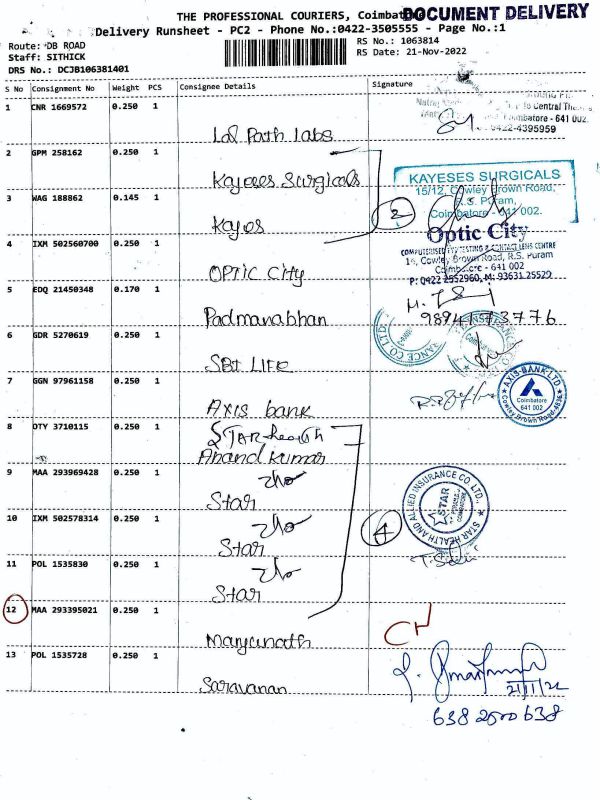 THE PROFESSIONAL COURIERS, Coimbatore
DOCUMENT DELIVERY
Delivery Runsheet - PC2 - Phone No.:0422-3505555 - Page No.:1
Route: DB ROAD
RS No.: 1063814
Staff: SITHICK
RS Date: 21-Nov-2022
DRS No.: DCJB106381401
S No Consignment No Weight PCS Consignee Details Signature
1 CNR 1669572 0.250 1
Central
Coimbatore - 641 002.
0422-4395959
Lal Path Labs
2 GPM 258162 0.250 1
Kayeses Surgicals
KAYESES SURGICALS
15/12, Cowley Brown Road,
R.S. Puram,
Coimbatore - 641 002.
3 WAG 188862 0.145 1
2
Kayes
4 IXM 502560700 0.250 1
Optic City
COMPUTERISED EYE TESTING & CONTACT LENS CENTRE
16, Cowley Brown Road, R.S. Puram
Coimbatore - 641 002
P: 0422 2552960, M: 93631 25529
OPTIC CITY
5 EDQ 21450348 0.170 1
Padmanabhan
9894173776
6 GDR 5270619 0.250 1
SBI LIFE
7 GGN 97961158 0.250 1
AXIS BANK LTD
Coimbatore
641 002
Cowley Brown Road
Axis bank
8 OTY 3710115 0.250 1
Star health
Anand Kumar
9 MAA 293969428 0.250 1
Star
STAR HEALTH AND ALLIED INSURANCE CO. LTD.,
STAR
10 IXM 502578314 0.250 1
4
Star
11 POL 1535830 0.250 1
Star
12 MAA 293395021 0.250 1
Manjunath
CN
13 POL 1535728 0.250 1
Saravanan
21/11/22
638 2500 638